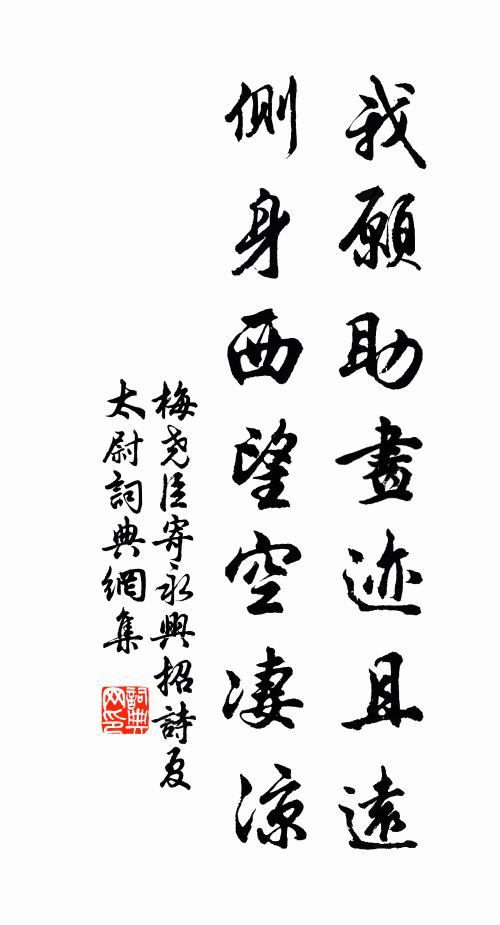 我願助畫迹且遠
側身西望空淒涼
梅堯臣寄永興招詩夏
太尉詞典網集
詞典网印